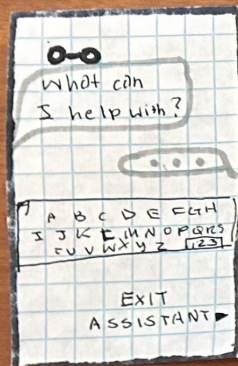 What can
I help with?
A B C D E F G H
I J K L M N O P Q R S
T U V W X Y Z 123
EXIT
ASSISTANT